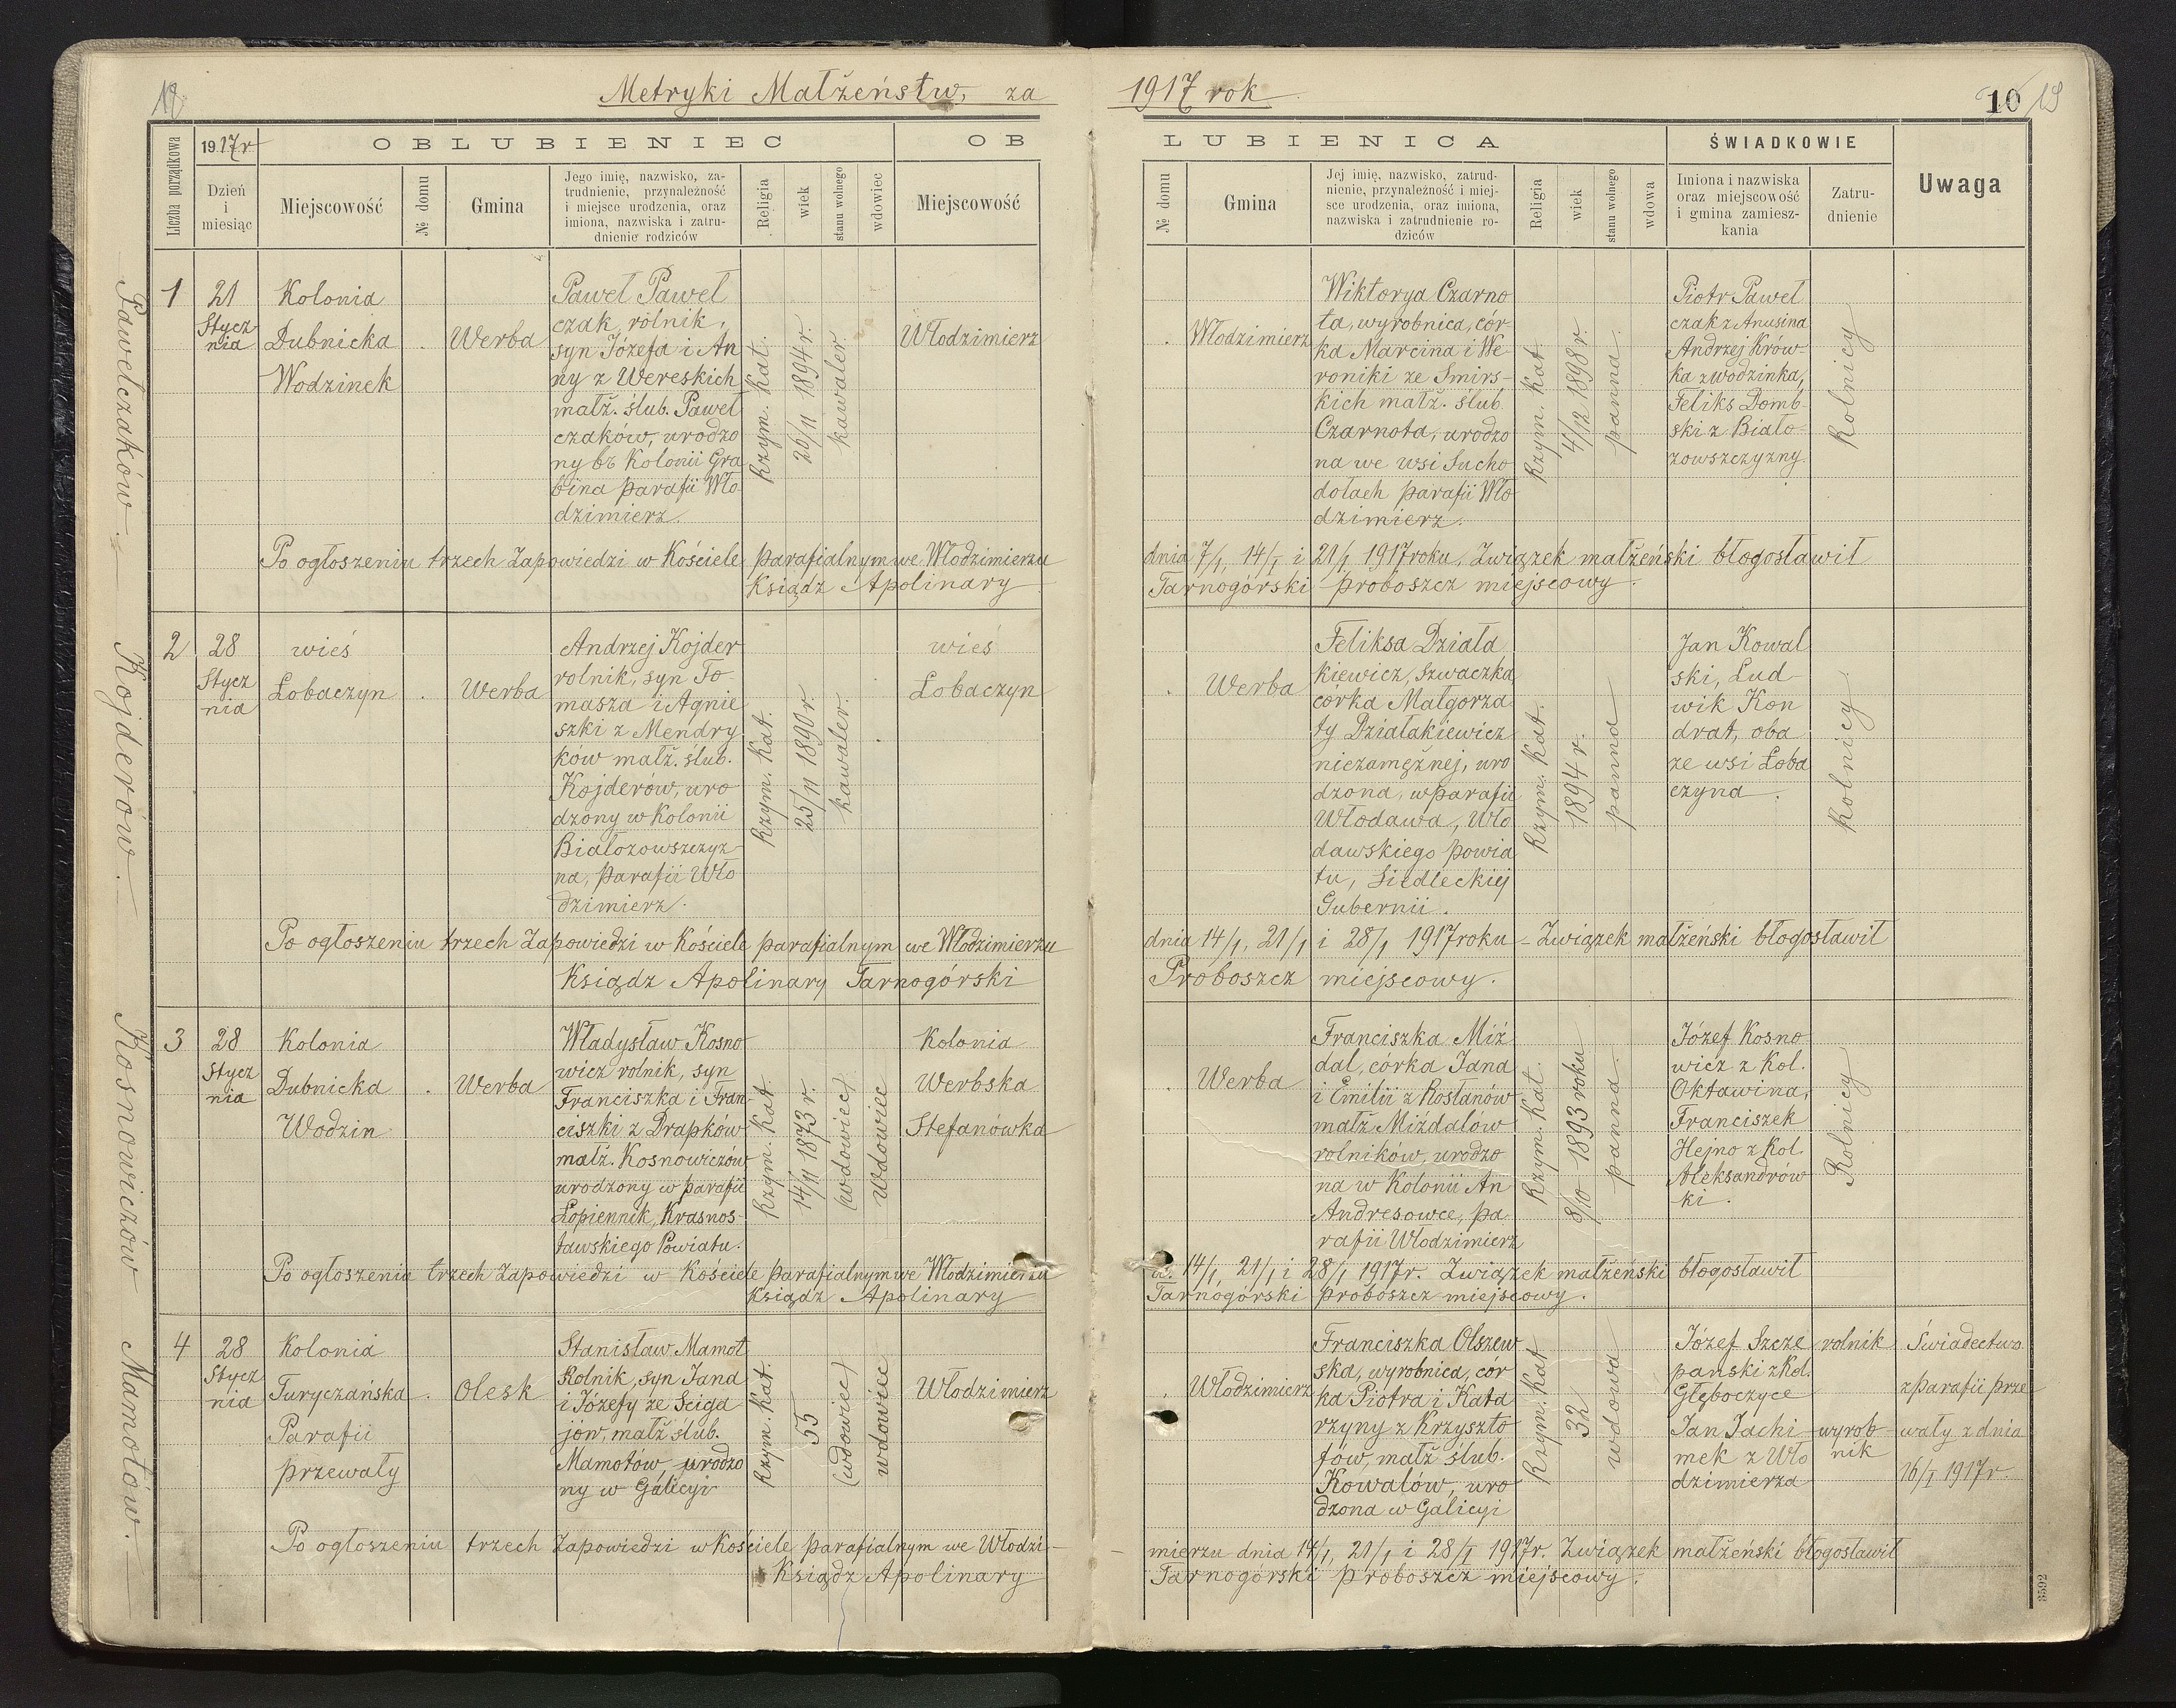 Metryki Małżeństw, za 1917 rok
18
10
19
Liczba porządkowa
1917r
Dzień
i
miesiąc
OBLUBIENIEC
Miejscowość
№ domu
Gmina
Jego imię, nazwisko, za-
trudnienie, przynależność
i miejsce urodzenia, oraz
imiona, nazwiska i zatru-
dnienie rodziców
Religia
wiek
stanu wolnego
wdowiec
OBLUBIENICA
Miejscowość
№ domu
Gmina
Jej imię, nazwisko, zatrud-
nienie, przynależność i miej-
sce urodzenia, oraz imiona,
nazwiska i zatrudnienie ro-
dziców
Religia
wiek
stanu wolnego
wdowa
ŚWIADKOWIE
Imiona i nazwiska
oraz miejscowość
i gmina zamiesz-
kania
Zatru-
dnienie
Uwaga
Pawełczaków.
1
21
Stycz
nia
Kolonia
Dubnicka
Wodzinek
Werba
Paweł Paweł
czak, rolnik,
syn Józefa i An
ny z Wereskich
małż. ślub. Paweł
czaków, urodzo
ny bz Kolonii Gra
bina parafii Wło
dzimierz.
Rzym. Kat.
26/11 1894 r.
kawaler.
Włodzimierz
Włodzimierz
Wiktorya Czarno
ta, wyrobnica, cór-
ka Marcina i We-
roniki ze Smirs-
kich małż. ślub.
Czarnota, urodzo
na we wsi Sucho
dołach parafii Wło
dzimierz.
Rzym. Kat.
4/12 1898 r.
panna.
Piotr Paweł
czak z Anusina
Andrzej Krów-
ka z Wodzinka,
Feliks Domb-
ski z Biało-
zowszczyzny.
Rolnicy
Po ogłoszeniu trzech Zapowiedzi w Kościele parafialnym we Włodzimierzu dnia 7/1, 14/1 i 21/1 1917 roku, Związek małżeński błogosławił
Ksiądz Apolinary Tarnogórski proboszcz miejscowy.
Kojderów.
2
28
Stycz
nia
wieś
Łobaczyn
Werba
Andrzej Kojder
rolnik, syn To-
masza i Agnie
szki z Mendry
ków małż. ślub.
Kojderów, uro
dzony w Kolonii
Białozowszczyz-
na, parafii Wło
dzimierz.
Rzym. Kat.
25/11 1890 r.
kawaler.
wieś
Łobaczyn
Werba
Feliksa Działa
kiewicz, szwaczka,
córka Małgorza
ty Działakiewicz
niezamężnej, uro
dzona, w parafii
Włodawa, Wło
dawskiego powia
tu, Siedleckiej
Gubernii.
Rzym. Kat.
1894 r.
panna
Jan Kowal
ski, Lud-
wik Kon
drat, oba
ze wsi Łoba
czyna.
Rolnicy.
Po ogłoszeniu trzech Zapowiedzi w Kościele parafialnym we Włodzimierzu dnia 14/1, 21/1 i 28/1 1917 roku - Związek małżeński błogosławił
Ksiądz Apolinary Tarnogórski Proboszcz miejscowy.
Kosnowiczów
3
28
Stycz
nia
Kolonia
Dubnicka
Wodzin
Werba
Władysław Kosno
wicz rolnik, syn
Franciszka i Fran-
ciszki z Drapków
małż. Kosnowiczów
urodzony w parafii
Łopiennik, Krasnos-
tawskiego Powiatu.
Rzym. Kat.
14/11 1873 r.
(wdowiec)
wdowiec
Kolonia
Werbska
Stefanówka
Werba
Franciszka Miź
dal, córka Jana
i Emilii z Rosłanów
małż. Miździałów
rolników, urodzo
na w Kolonii An
Andresowce, pa-
rafii Włodzimierz
Rzym. Kat.
8/10 1893 roku
panna.
Józef Kosno
wicz z Kol.
Oktawina,
Franciszek
Hejno z Kol.
Aleksandrów
ki.
Rolnicy
Po ogłoszeniu trzech Zapowiedzi w Kościele parafialnym we Włodzimierzu d. 14/1, 21/1 i 28/1 1917 r. Związek małżeński błogosławił
Ksiądz Apolinary Tarnogórski proboszcz miejscowy.
Mamotów.
4
28
Stycz
nia
Kolonia
Turyczańska
Parafii
przewały
Olesk
Stanisław Mamot
Rolnik, syn Jana
i Józefy ze Sciga
jów, małż ślub.
Mamotów urodzo
ny w Galicyi
Rzym. Kat.
55
(wdowiec)
wdowiec
Włodzimierz
Włodzimierz
Franciszka Olszew
ska, wyrobnica, cór
ka Piotra i Kata
rzyny z Krzyszto
fów, małż ślub.
Kowalów, uro
dzona w Galicyi
Rzym. Kat
32
wdowa
Józef Szcze
pański z Kol.
Głęboczyce
Jan Jachi
mek z Wło
dzimierza
rolnik
wyrob
nik
Świadectwo
z parafii prze
wały z dnia
16/I 1917 r.
Po ogłoszeniu trzech Zapowiedzi w Kościele parafialnym we Włodzi-mierzu dnia 14/1, 21/1 i 28/I 1917r. Związek małżeński błogosławił
Ksiądz Apolinary Tarnogórski proboszcz miejscowy.
3592